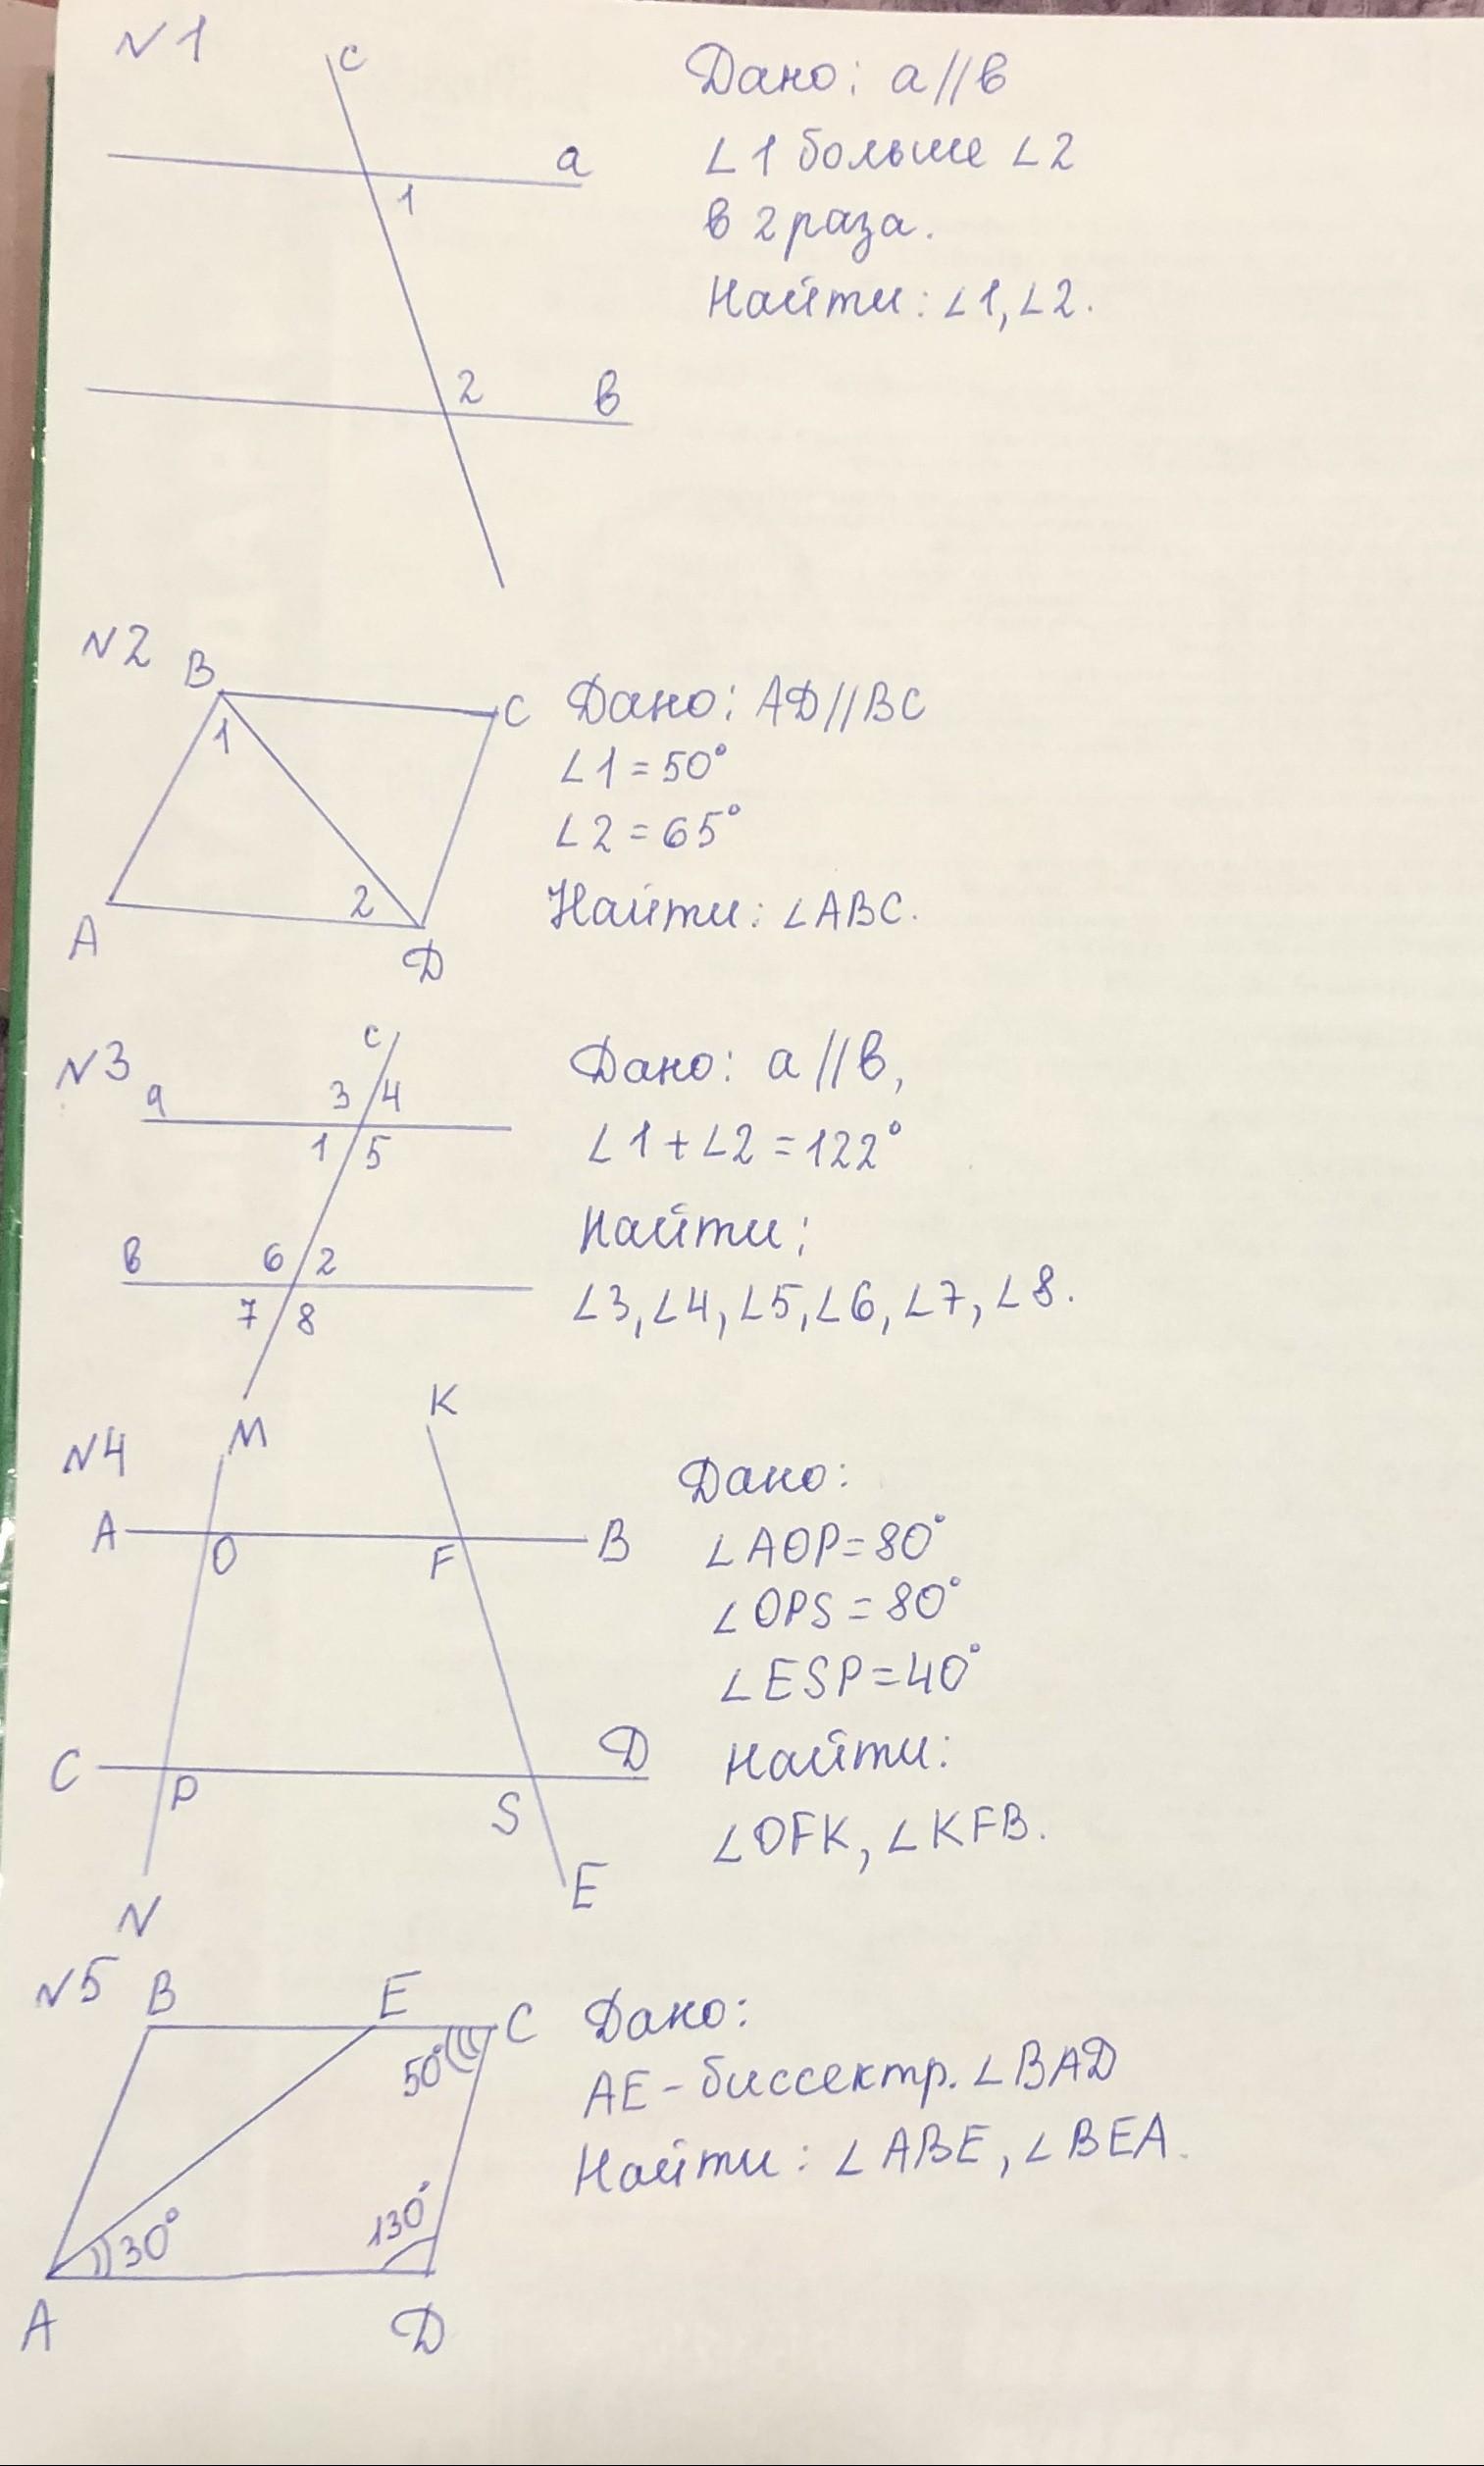 №1
c
a
1
2
в
Дано: a//в
∠1 больше ∠2
в 2 раза.
Найти: ∠1, ∠2.
№2
B
C
1
2
A
D
Дано: AD//BC
∠1 = 50°
∠2 = 65°
Найти: ∠ABC.
№3
c
a
3 4
1 5
в
6 2
7 8
Дано: a//в,
∠1 + ∠2 = 122°
Найти:
∠3, ∠4, ∠5, ∠6, ∠7, ∠8.
№4
M
K
A
O
F
B
C
P
S
D
N
E
Дано:
∠AOP = 80°
∠OPS = 80°
∠ESP = 40°
Найти:
∠OFK, ∠KFB.
№5
B
E
C
50°
30°
130°
A
D
Дано:
AE - биссектр. ∠BAD
Найти: ∠ABE, ∠BEA.